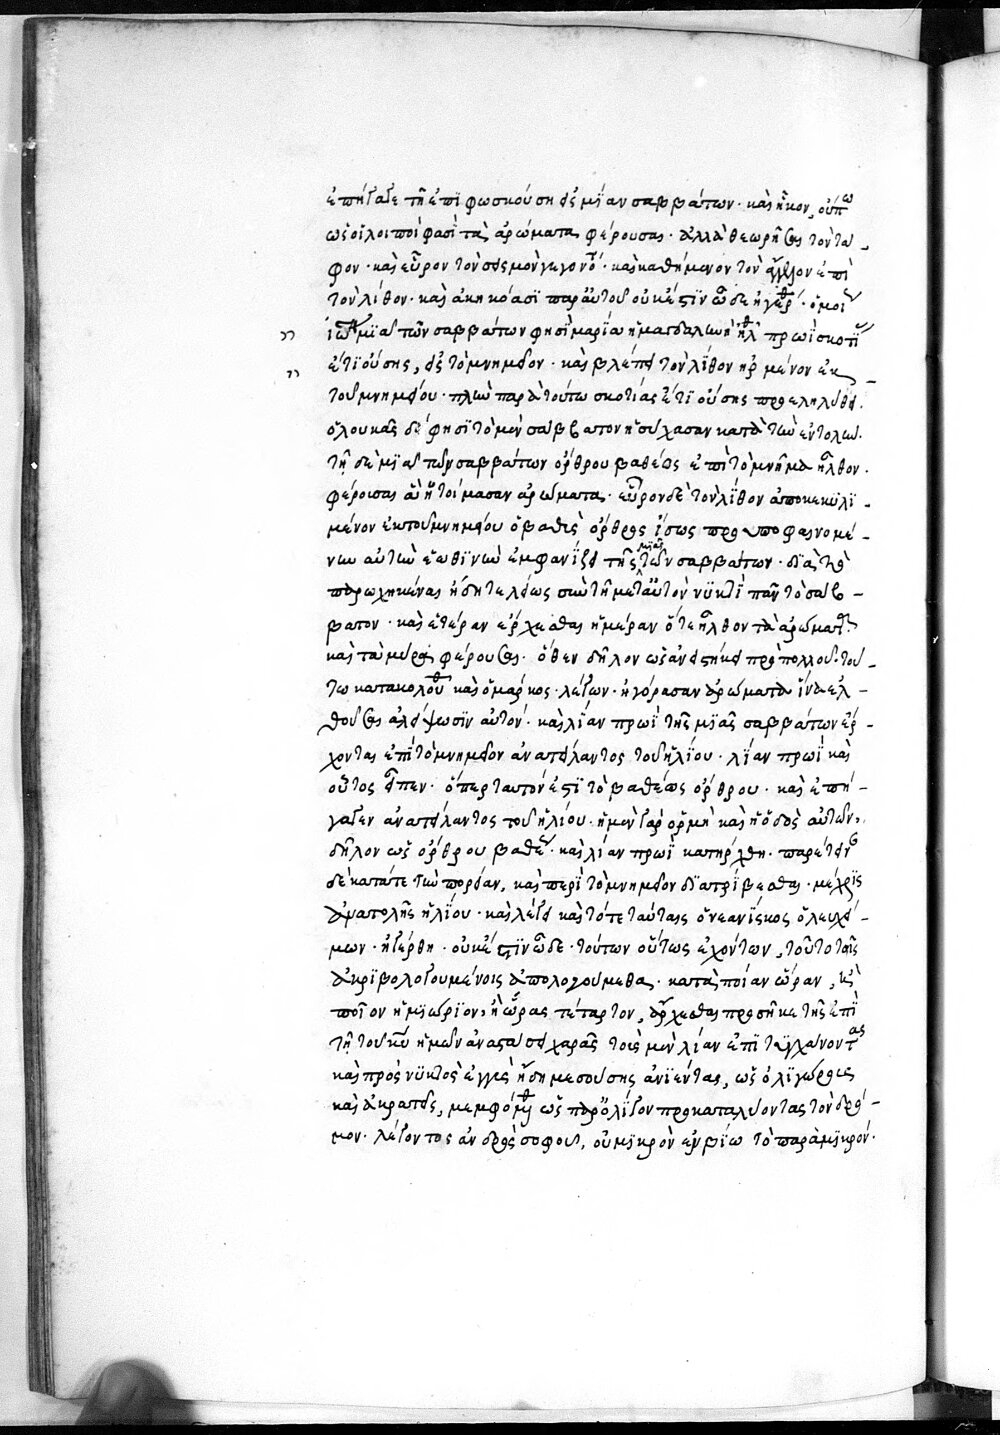 ἐπήγαγε τῇ ἐπιφωσκούσῃ εἰς μίαν σαββάτων· καὶ ἧκον, οὔπω
ὡς οἱ λοιποί φασὶ τὰ ἀρώματα φέρουσαι· ἀλλὰ θεωρῆσαι τὸν τά-
φον· καὶ εὗρον τὸν σεισμὸν γεγονό· καὶ καθήμενον τὸν ἄγγελον ἐπὶ
τὸν λίθον· καὶ ἀκηκόασι παρ' αὐτοῦ οὐκ ἔστιν ὧδε ἠγέρθ· ὁμοί
ἰωα μιᾷ τῶν σαββάτων φησὶ μαρία ἡ μαγδαληνὴ ἦλθ πρωῒ σκοτί
ἔτι οὔσης, εἰς τὸ μνημεῖον· καὶ βλέπει τὸν λίθον ἠρμένον ἐκ
τοῦ μνημείου· πλὴν παρὰ τούτω σκοτίας ἔτι οὔσης προεληλύθει.
ὁ λουκᾶς δέ φησι τὸ μὲν σάββατον ἡσύχασαν κατὰ τὴν ἐντολήν.
τῇ δὲ μιᾷ τῶν σαββάτων ὄρθρου βαθέως ἐπὶ τὸ μνῆμα ἦλθον.
φέρουσαι ἃ ἡτοίμασαν ἀρώματα· εὗρον δὲ τὸν λίθον ἀποκεκυλι-
μένον ἐκ τοῦ μνημείου ὁ βαθὺς ὄρθρος ἴσως προυποφαινομέ-
νην αὐτὴν ἑωθινὴν ἐμφανίζει τῆς μιᾶς τῶν σαββάτων· διὰ τὸ
παρωχηκέναι ἤδη τελείως σὺν τῇ μετ' αὐτὸν νυκτὶ πᾶν τὸ σάβ-
βατον· καὶ ἑτέραν ἄρχεσθαι ἡμέραν ὅτε ἦλθον τὰ ἀρώματ
καὶ τὰ μύρα φέρουσαι· ὅθεν δῆλον ὡς ἀνειστήκει πρὸ πολλοῦ· τού-
τω κατακολουθ καὶ ὁ μάρκος· λέγων· ἠγόρασαν ἀρώματα ἵνα ἐλ-
θοῦσαι ἀλείψωσιν αὐτόν· καὶ λίαν πρωῒ τῆς μιᾶς σαββάτων ἔρ-
χονται ἐπὶ τὸ μνημεῖον ἀνατείλαντος τοῦ ἡλίου· λίαν πρωῒ καὶ
οὗτος εἶπεν· ὅπερ ταυτόν ἐστι τὸ βαθέως ὄρθρου· καὶ ἐπή-
γαγεν ἀνατείλαντος τοῦ ἡλίου· ἡ μὲν γὰρ ὁρμὴ καὶ ἡ ὁδὸς αὐτῶν,
δῆλον ὡς ὄρθρου βαθέ· καὶ λίαν πρωῒ κατήρχθη· παρέτεινε
δὲ κατά τε τὴν πορείαν, καὶ περὶ τὸ μνημεῖον διατρίβεσθαι· μέχρις
ἀνατολῆς ἡλίου· καὶ λέγει καὶ τότε ταύταις ὁ νεανίσκος ὁ λευχεί-
μων· ἠγέρθη· οὐκ ἔστιν ὧδε· τούτων οὕτως ἐχόντων, τοῦτο τοῖς
ἀκριβολογουμένοις ἀπολογούμεθα· κατὰ ποίαν ὥραν, καὶ
ποῖον ἡμιώριον, ἢ ὥρας τέταρτον, ἄρχεσθαι προσῆκε τῆς ἐπὶ
τῇ τοῦ κυ ἡμῶν ἀναστάσει χαρᾶς τοὺς μὲν λίαν ἐπιταγχάνοντας
καὶ πρὸ νυκτὸς ἐγγὺς ἤδη μεσούσης ἀνιέντας, ὡς ὀλιγώρους
καὶ ἀκρατεῖς, μεμφόμεθ ὡς παρ' ὀλίγον προκαταλύοντας τὸν δρό-
μον· λέγοντος ἀνδρὸς σοφοῦ, οὐ μικρὸν ἐν βίω τὸ παρὰ μικρόν·